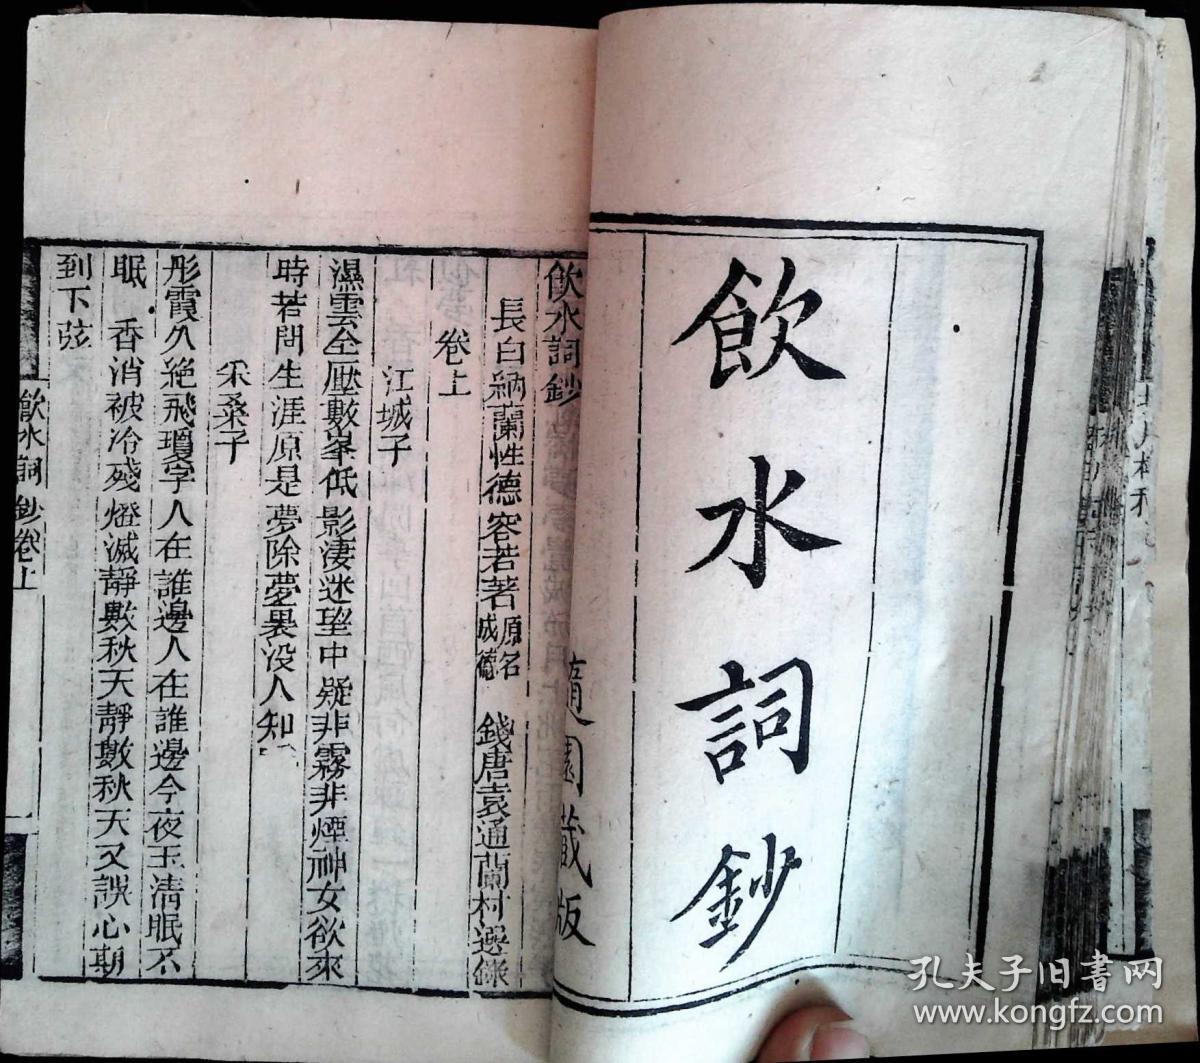 飲水詞鈔
隨園藏版
飲水詞鈔
長白納蘭性德容若著 原名成德 錢唐袁通蘭村選錄
卷上
江城子
濕雲全壓數峯低影淒迷望中疑非霧非煙神女欲來
時若問生涯原是夢除夢裏沒人知
采桑子
彤霞久絶飛瓊字人在誰邊人在誰邊今夜玉清眠不
眠 香消被冷殘燈滅靜數秋天靜數秋天又誤心期
到下弦
飲水詞鈔卷上
孔夫子旧书网
www.kongfz.com